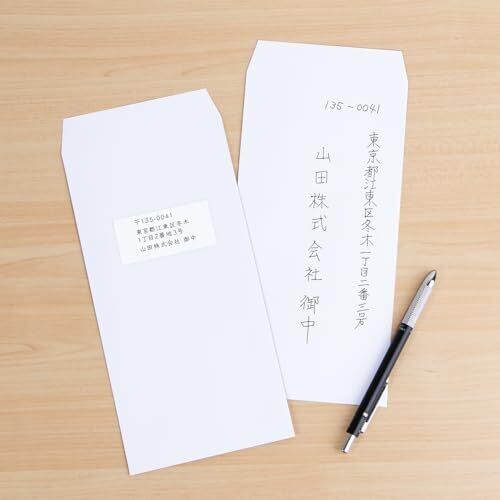 〒135-0041
東京都江東区冬木
1丁目2番地3号
山田株式会社 御中
135-0041
東京都江東区冬木一丁目二番三号
山田株式会社 御中